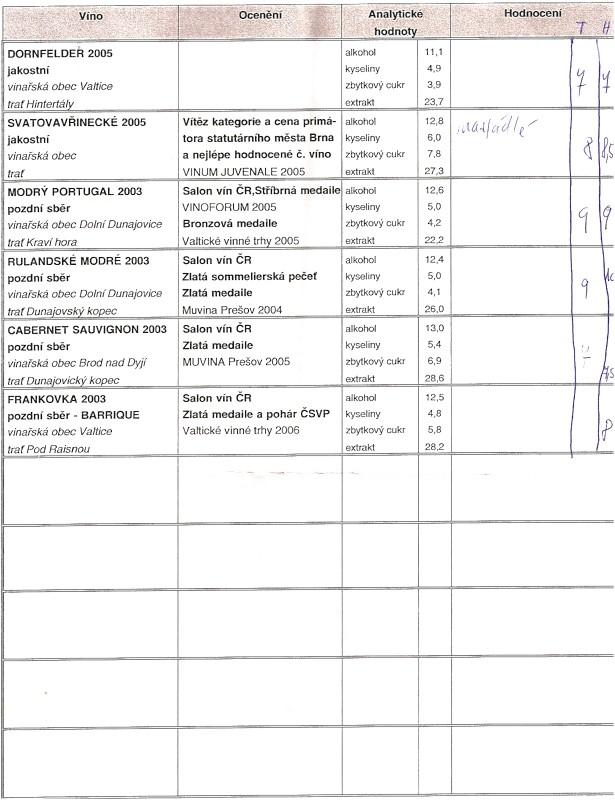 Víno Ocenění Analytické hodnoty Hodnocení
T H
DORNFELDER 2005 alkohol 11,1
jakostní kyseliny 4,9
vinařská obec Valtice zbytkový cukr 3,9 7 7
trať Hintertály extrakt 23,7
SVATOVAVŘINECKÉ 2005 Vítěz kategorie a cena primá- alkohol 12,8
jakostní tora statutárního města Brna kyseliny 6,0
vinařská obec a nejlépe hodnocené č. víno zbytkový cukr 7,8 8 8,5
trať VINUM JUVENALE 2005 extrakt 27,3
MODRÝ PORTUGAL 2003 Salon vín ČR,Stříbrná medaile alkohol 12,6
pozdní sběr VINOFORUM 2005 kyseliny 5,0
vinařská obec Dolní Dunajovice Bronzová medaile zbytkový cukr 4,2 9 9
trať Kraví hora Valtické vinné trhy 2005 extrakt 22,2
RULANDSKÉ MODRÉ 2003 Salon vín ČR alkohol 12,4
pozdní sběr Zlatá sommelierská pečeť kyseliny 5,0
vinařská obec Dolní Dunajovice Zlatá medaile zbytkový cukr 4,1 9
trať Dunajovský kopec Muvina Prešov 2004 extrakt 26,0
CABERNET SAUVIGNON 2003 Salon vín ČR alkohol 13,0
pozdní sběr Zlatá medaile kyseliny 5,4
vinařská obec Brod nad Dyjí MUVINA Prešov 2005 zbytkový cukr 6,9
trať Dunajovický kopec extrakt 28,6
FRANKOVKA 2003 Salon vín ČR alkohol 12,5
pozdní sběr - BARRIQUE Zlatá medaile a pohár ČSVP kyseliny 4,8
vinařská obec Valtice Valtické vinné trhy 2006 zbytkový cukr 5,8 8
trať Pod Raisnou extrakt 28,2